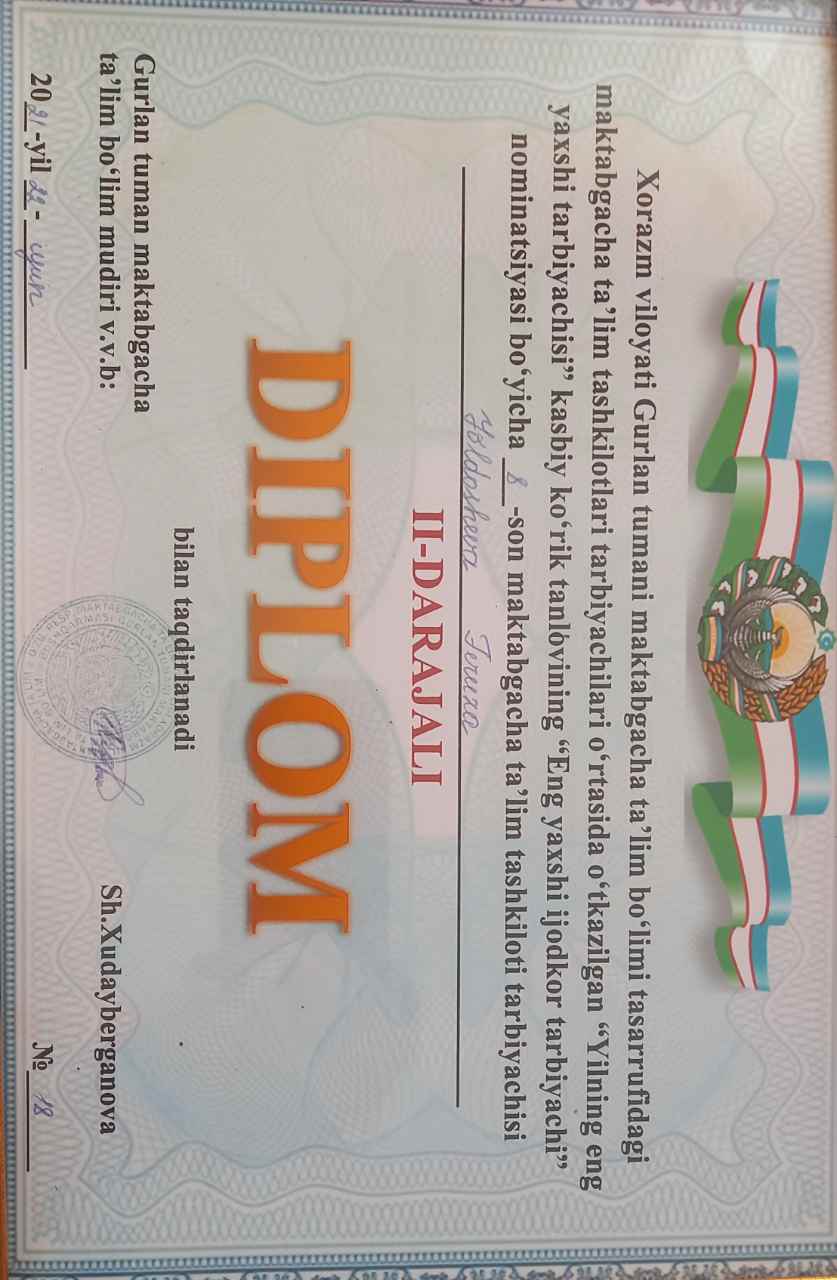 Xorazm viloyati Gurlan tumani maktabgacha ta’lim bo‘limi tasarrufidagi
maktabgacha ta’lim tashkilotlari tarbiyachilari o‘rtasida o‘tkazilgan “Yilning eng
yaxshi tarbiyachisi” kasbiy ko‘rik tanlovining “Eng yaxshi ijodkor tarbiyachi”
nominatsiyasi bo‘yicha 8 -son maktabgacha ta’lim tashkiloti tarbiyachisi
Yoldosheva
II-DARAJALI
DIPLOM
bilan taqdirlanadi
Gurlan tuman maktabgacha
ta’lim bo‘lim mudiri v.v.b:
Sh.Xudayberganova
2021-yil 22 - iyun
№ 18